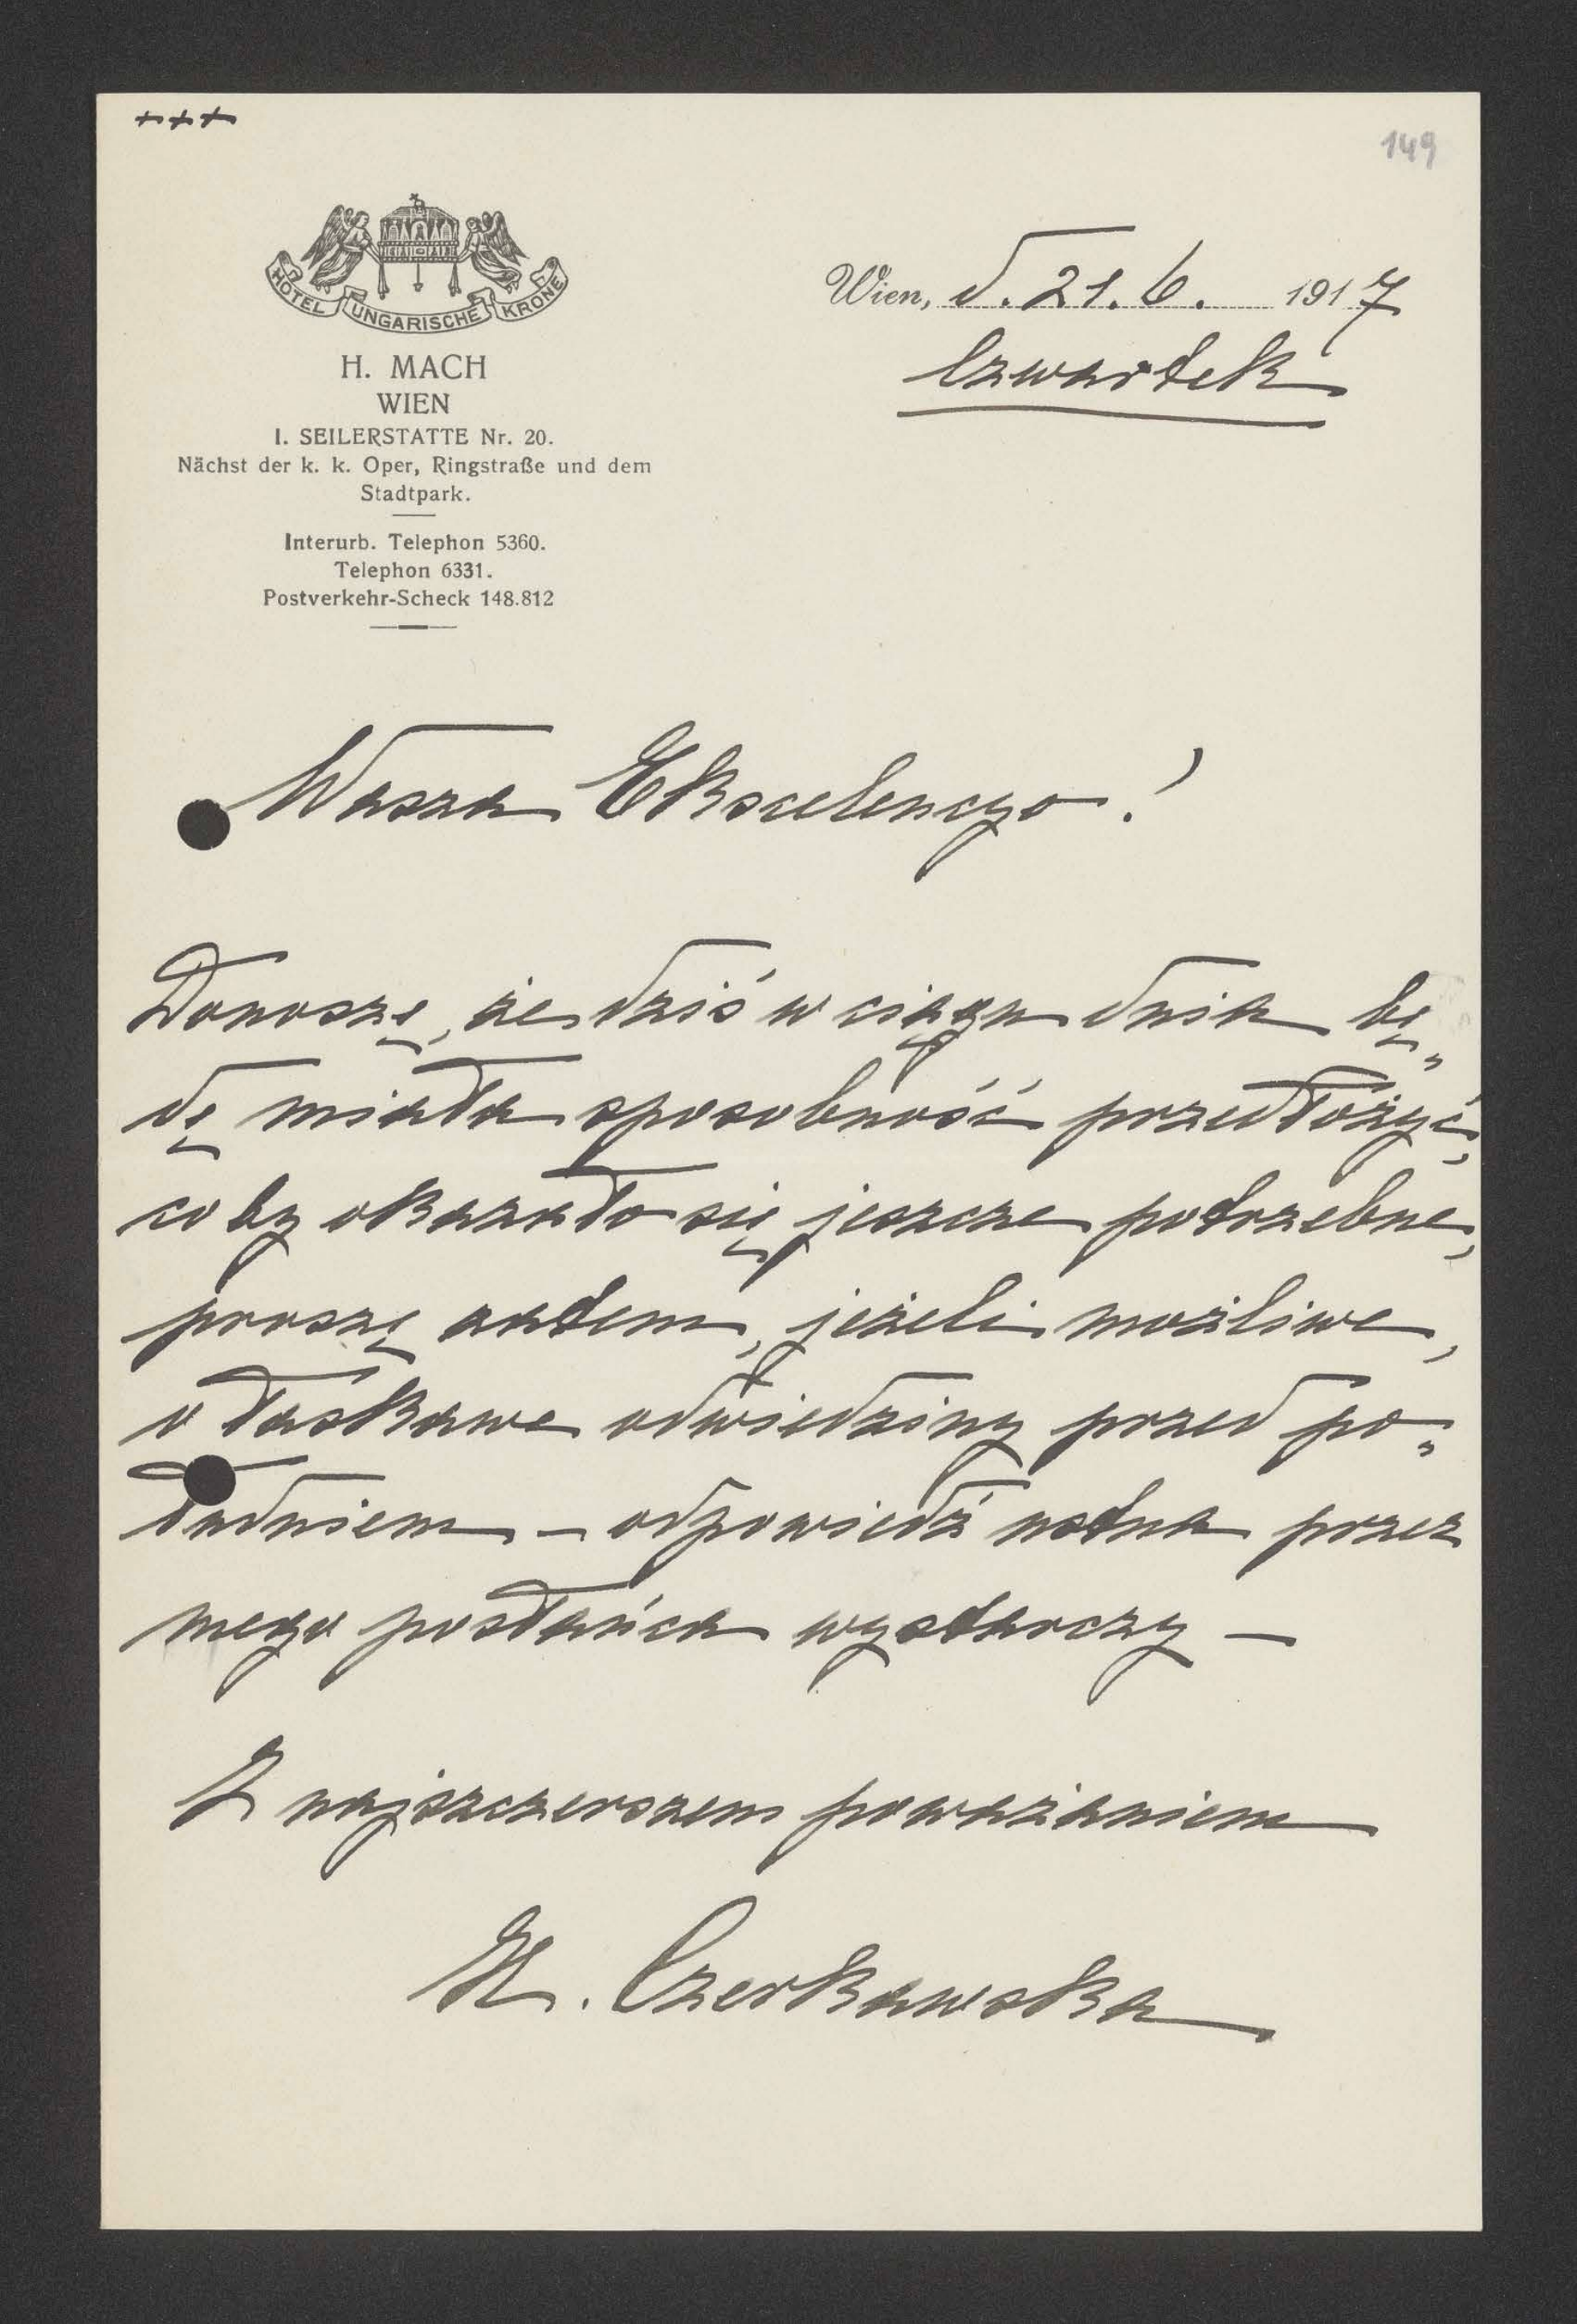 +++
149
HOTEL UNGARISCHE KRONE
H. MACH
WIEN
I. SEILERSTATTE Nr. 20.
Nächst der k. k. Oper, Ringstraße und dem
Stadtpark.
Interurb. Telephon 5360.
Telephon 6331.
Postverkehr-Scheck 148.812
Wien, d. 21. 6. 1917
Czwartek
Wasza Ekscelencyo!
Donoszę, że dziś w ciągu dnia bę„
dę miała sposobność przedłożyć,
co by okazało się jeszcze potrzebne,
proszę zatem, jeżeli możliwe,
o łaskawe odwiedziny przed po„
łudniem – odpowiedź ustna przez
mego posłańca wystarczy –
Z najszczerszem poważaniem
M. Czerkawska